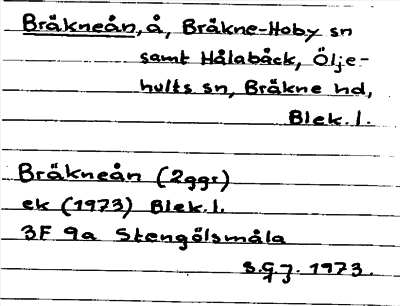 Bräkneån, å, Bräkne-Hoby sn
samt Hålabäck, Ölje-
hults sn, Bräkne hd,
Blek.l.
Bräkneån (2ggr)
ek (1973) Blek.l.
3F 9a Stengölsmåla
s.g.j. 1973.